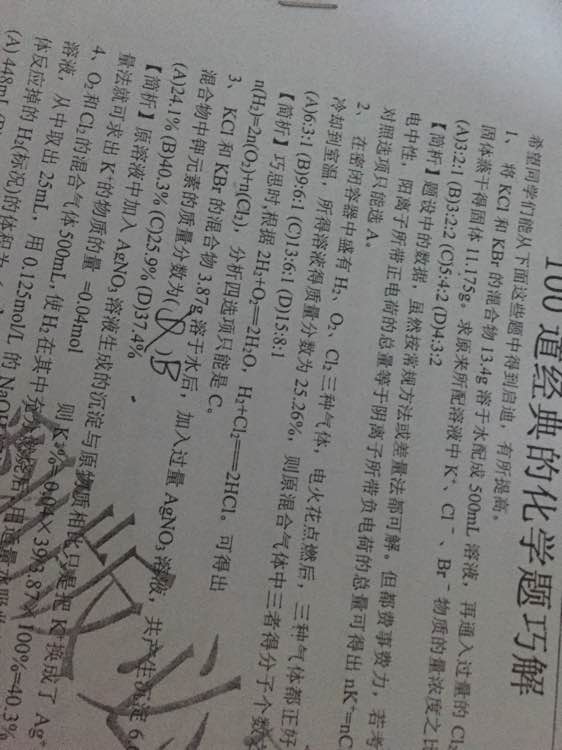 100 道经典的化学题巧解
希望同学们能从下面这些题中得到启迪，有所提高。
1、将 KCl 和 KBr 的混合物 13.4g 溶于水配成 500mL 溶液，再通入过量的 Cl
固体蒸干得固体 11.175g。求原来所配溶液中 K⁺、Cl⁻、Br⁻物质的量浓度之比
(A)3:2:1 (B)3:2:2 (C)5:4:2 (D)4:3:2
【简析】题设中的数据，虽然按常规方法或差量法都可解。但都费事费力，若考
电中性，阳离子所带正电荷的总量等于阴离子所带负电荷的总量可得出 nK⁺=nC
对照选项只能选 A。
2、在密闭容器中盛有 H₂、O₂、Cl₂ 三种气体，电火花点燃后，三种气体都正好
冷却到室温，所得溶液得质量分数为 25.26%，则原混合气体中三者得分子个数
(A)6:3:1 (B)9:6:1 (C)13:6:1 (D)15:8:1
【简析】巧思时,根据 2H₂+O₂==2H₂O，H₂+Cl₂==2HCl。可得出
n(H₂)=2n(O₂)+n(Cl₂)，分析四选项只能是 C。
3、KCl 和 KBr 的混合物 3.87g 溶于水后，加入过量 AgNO₃ 溶液，共产生沉淀 6.
混合物中钾元素的质量分数为( )B
(A)24.1% (B)40.3% (C)25.9% (D)37.4%
【简析】原溶液中加入 AgNO₃ 溶液生成的沉淀与原物质相比只是把 K⁺换成了 Ag⁺
量法就可求出 K⁺的物质的量 =0.04mol 则 K%=0.04×39/3.87×100%=40.3%
4、O₂ 和 Cl₂ 的混合气体 500mL，使 H₂ 在其中充分燃烧后，用过量水吸
溶液，从中取出 25mL，用 0.125mol/L 的 NaOH
体反应掉的 H₂(标况)的体积为
(A) 448mL